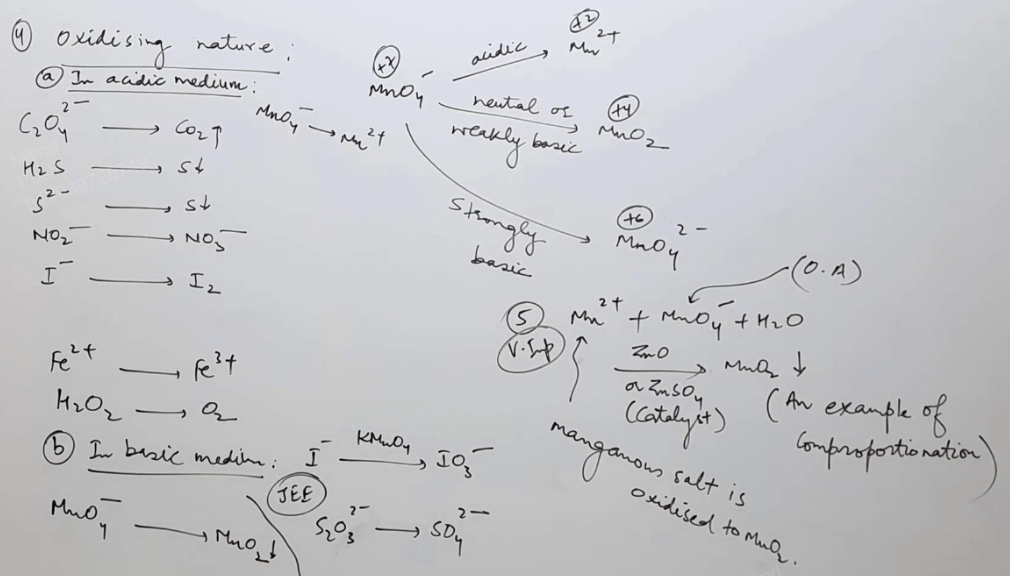 ④ Oxidising nature :
ⓐ In acidic medium :
C₂O₄²⁻ ⟶ CO₂↑
MnO₄⁻ ⟶ Mn²⁺
H₂S ⟶ S↓
S²⁻ ⟶ S↓
NO₂⁻ ⟶ NO₃⁻
I⁻ ⟶ I₂
Fe²⁺ ⟶ Fe³⁺
H₂O₂ ⟶ O₂
ⓑ In basic medium :
MnO₄⁻ ⟶ MnO₂↓
JEE
I⁻ KMnO₄ ⟶ IO₃⁻
S₂O₃²⁻ ⟶ SO₄²⁻
+7
MnO₄⁻
acidic
+2
Mn²⁺
neutal or
weakly basic
+4
MnO₂
Strongly
basic
+6
MnO₄²⁻
(O.A)
⑤ Mn²⁺ + MnO₄⁻ + H₂O
V.Imp
ZnO
or ZnSO₄
(Catalyst)
⟶ MnO₂ ↓
(An example of
Comproportionation)
manganous salt is
oxidised to MnO₂.